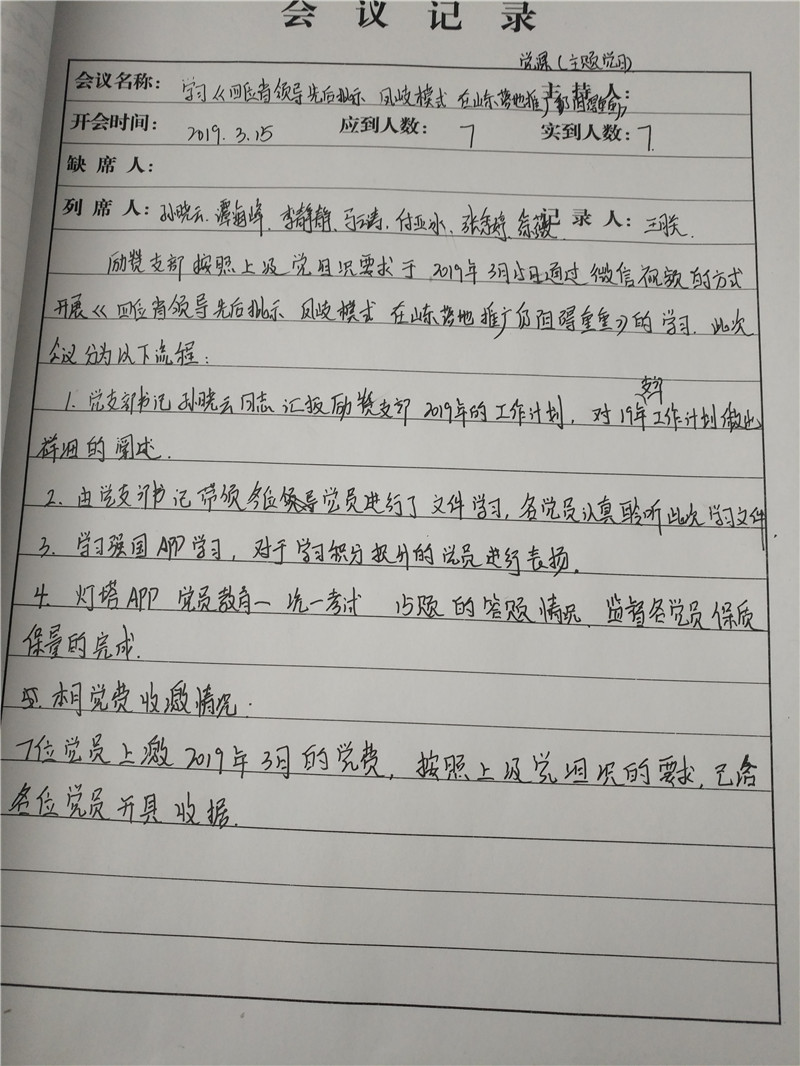 会议记录
党课(主题党日)
会议名称: 学习《四位省领导先后批示 凤岐模式 在山东落地推广仍阻碍重重》 主持人:
开会时间: 2019.3.15 应到人数: 7 实到人数: 7
缺席人:
列席人: 孙晓云、谭海峰、李静静、马涛、付亚冰、张 记录人:
励赞支部按照上级党组织要求于2019年3月15日通过微信视频的方式
开展《四位省领导先后批示 凤岐模式 在山东落地推广仍阻碍重重》的学习.此次
会议分为以下流程:
1. 党支部书记孙晓云同志汇报励赞支部2019年的工作计划,对19年支部工作计划做出
详细的阐述.
2. 由党支部书记带领各位领导党员进行了文件学习,各党员认真聆听此次学习文件.
3. 学习强国APP学习,对于学习积分 的党员进行表扬。
4. 灯塔APP 党员教育—统一考试 15题的答题情况、监督各党员保质
保量的完成.
5. 本月党费收缴情况:
7位党员上缴2019年3月的党费,按照上级党组织的要求,已给
各位党员开具收据.